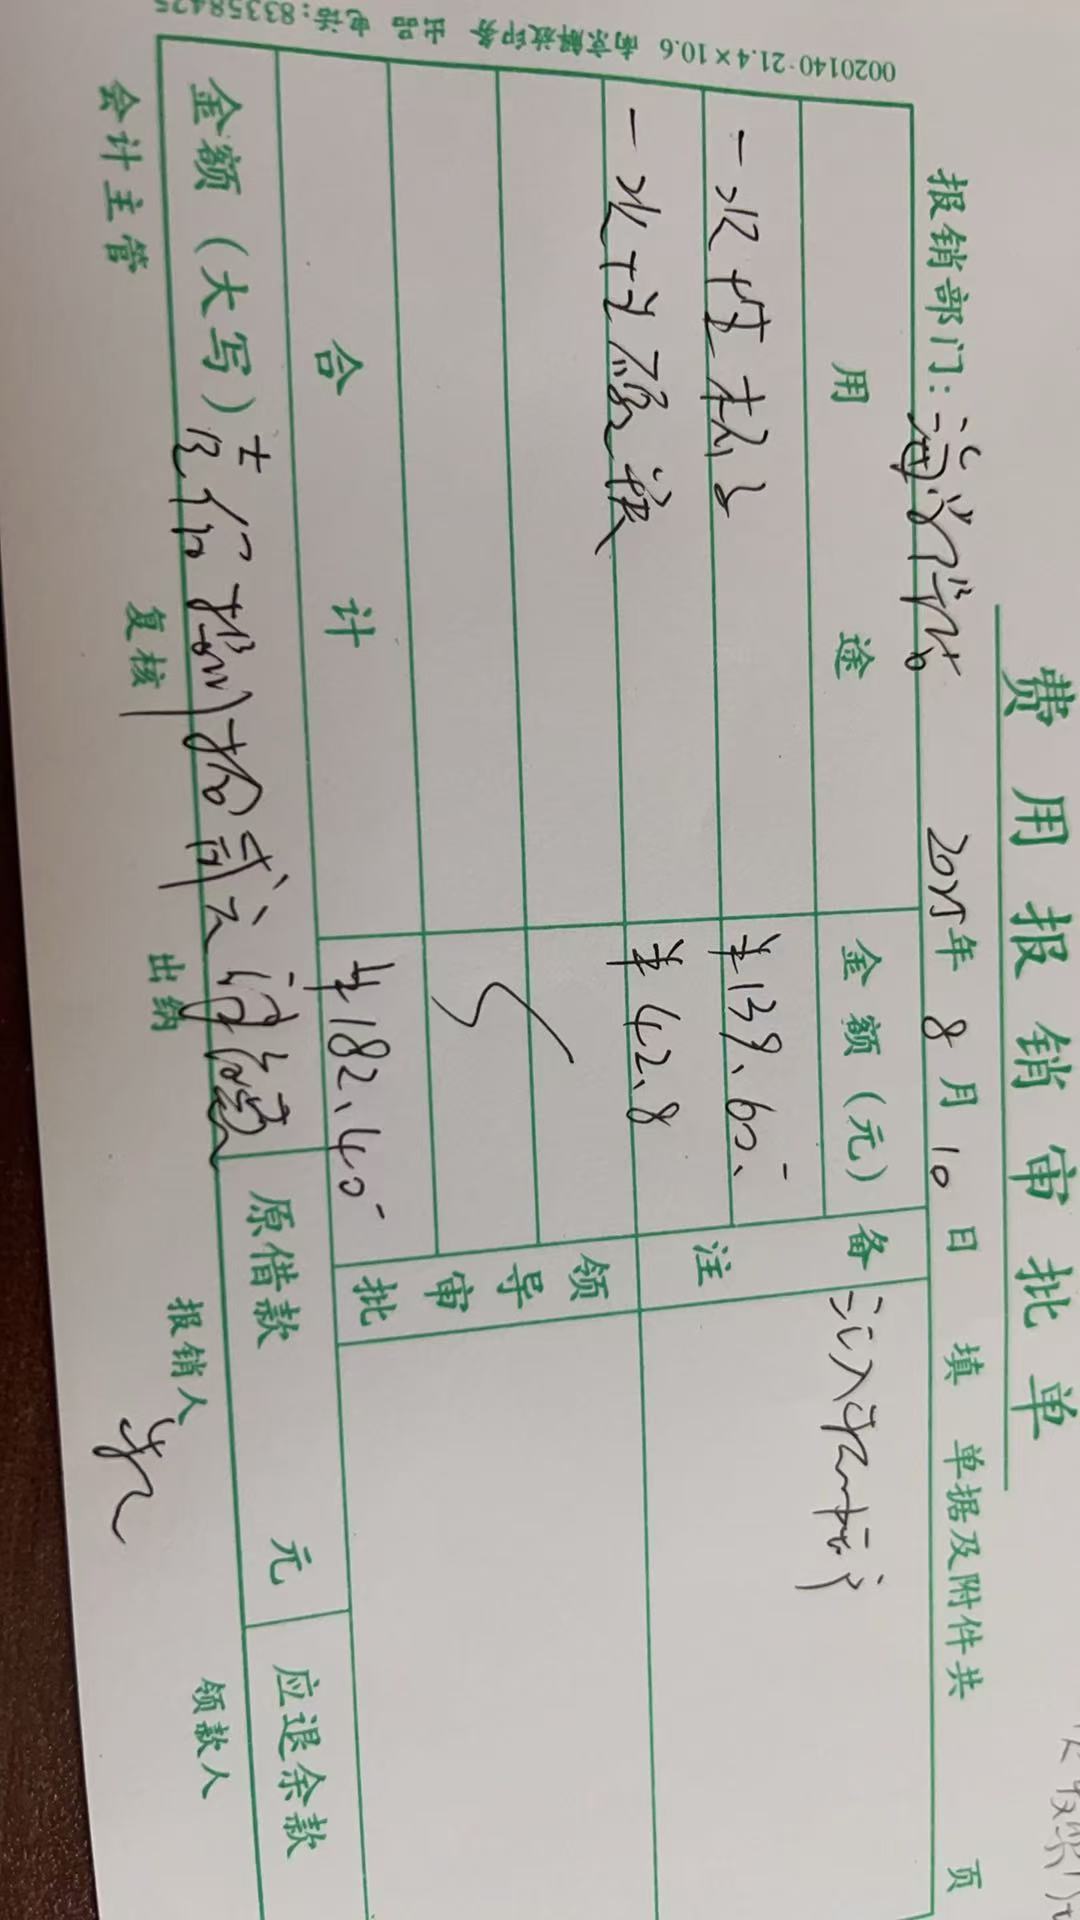 费用报销审批单
报销部门: 2025年 8月 10日 填 单据及附件共 页
用途 金额(元) 备注
一次性杯子 ¥139.60
一次性 ¥42.8
领导审批
合计 ¥182.40
金额(大写) 壹佰捌拾贰元肆角 原借款 元 应退余款
会计主管 复核 出纳 报销人 领款人
0020140·21.4×10.6 南京解放印务 出品 电话:83358425